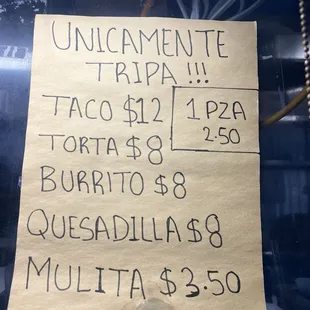 UNICAMENTE
TRIPA !!!
TACO $12
1 PZA
2.50
TORTA $8
BURRITO $8
QUESADILLA $8
MULITA $3.50